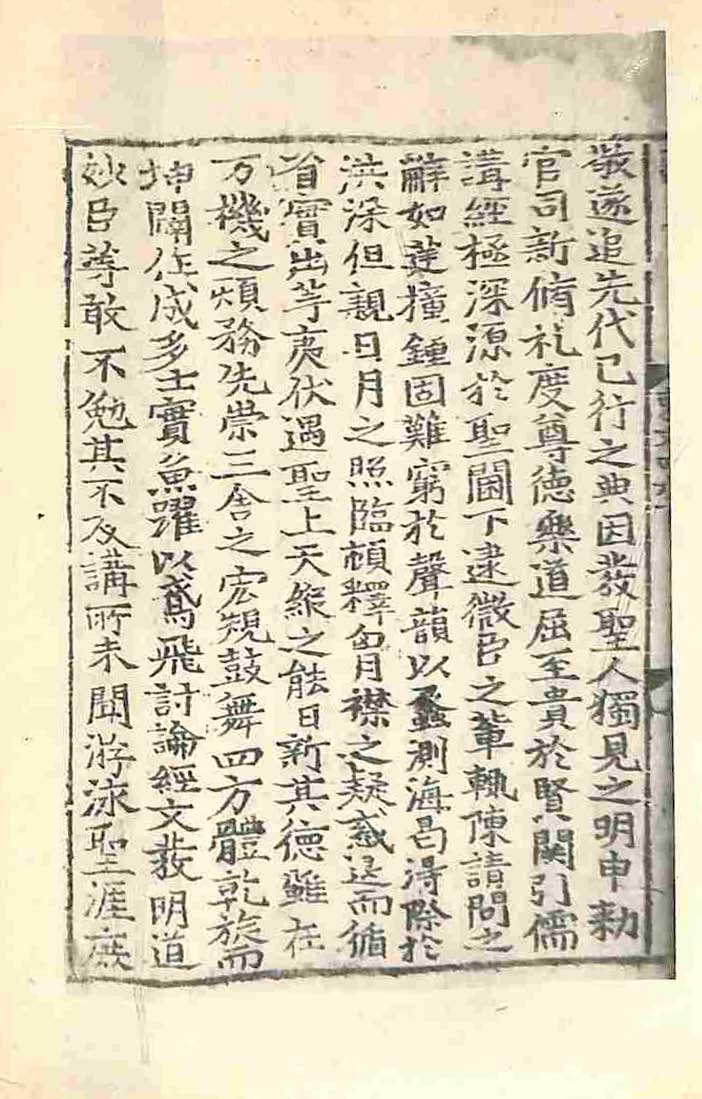 敬遂追先代已行之典因發聖人獨見之明申勑
官司新脩礼度尊德樂道屈至貴於賢関引儒
講經極深源於聖閫下逮微臣之輩輒陳請問之
辭如莛撞鍾固難窮於聲韻以蠡測海曷淂際於
洪深但親日月之照臨頓釋胷襟之疑惑退而循
省實出等夷伏遇聖上天縱之能日新其德雖在
万機之煩務先崇三舍之宏規鼓舞四方體乾旋而
坤闢作成多士實魚躍以鳶飛討論經文發明道
妙臣等敢不勉其不及講所未聞游泳聖涯庶